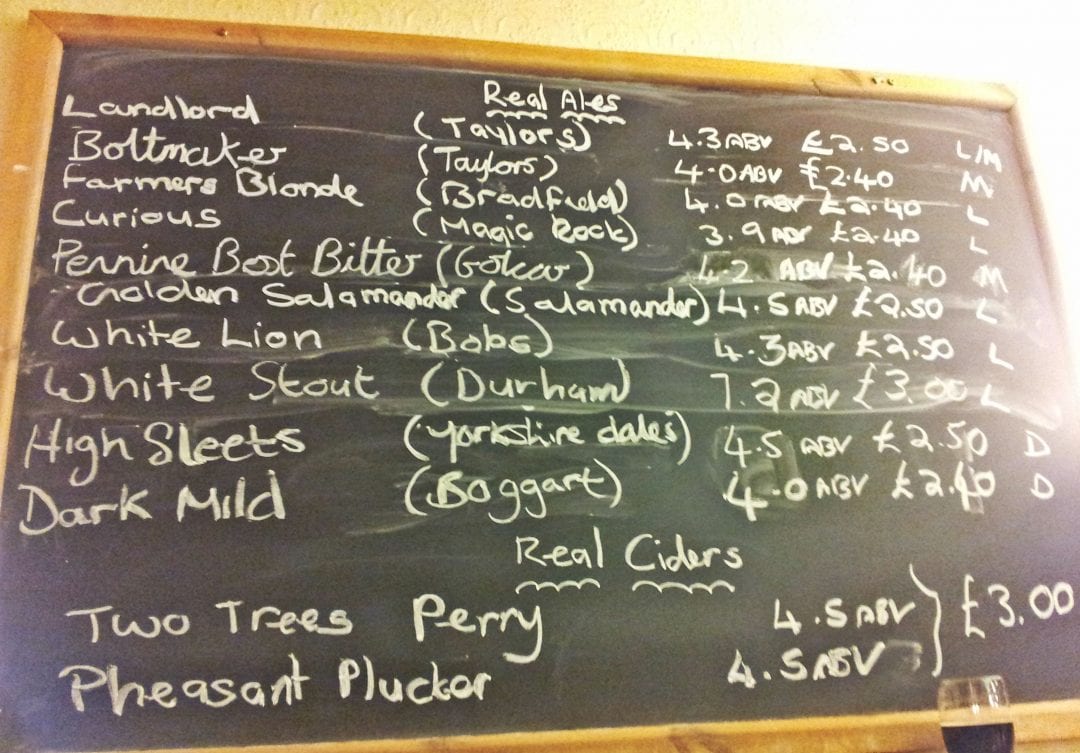 Real Ales
Landlord (Taylors) 4.3 ABV £2.50 L/M
Boltmaker (Taylors) 4.0 ABV £2.40 M
Farmers Blonde (Bradfield) 4.0 ABV £2.40 L
Curious (Magic Rock) 3.9 ABV £2.40 L
Pennine Best Bitter (Golcar) 4.2 ABV £2.40 M
Golden Salamander (Salamander) 4.5 ABV £2.50 L
White Lion (Bobs) 4.3 ABV £2.50 L
White Stout (Durham) 7.2 ABV £3.00 L
High Sleets (Yorkshire dales) 4.5 ABV £2.50 D
Dark Mild (Boggart) 4.0 ABV £2.40 D
Real Ciders
Two Trees Perry 4.5 ABV } £3.00
Pheasant Plucker 4.5 ABV